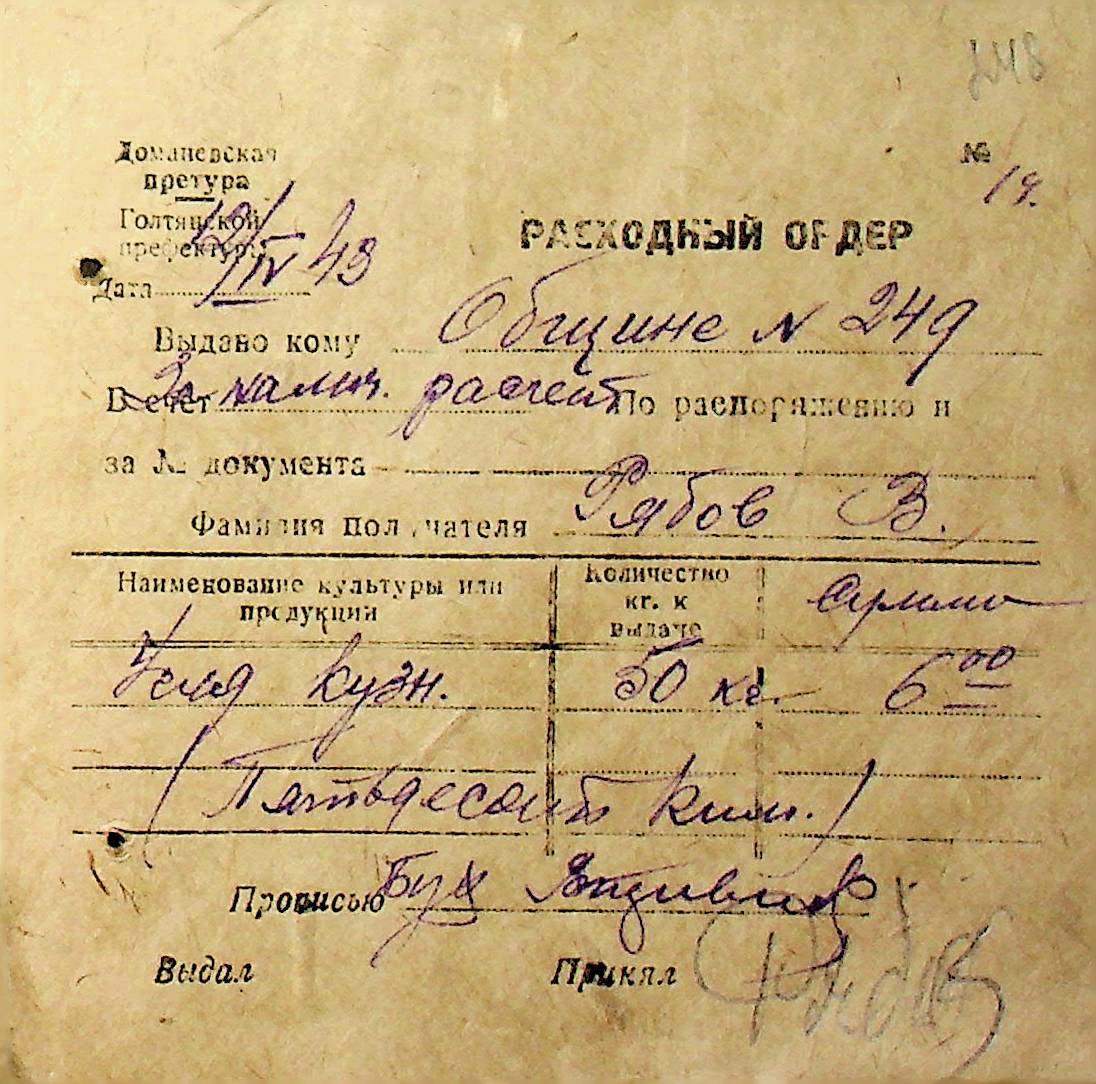 248
Доманевская
претура
Голтянской
префектуры
№ 19.
РАСХОДНЫЙ ОРДЕР
Дата /IV 43
Выдано кому Общине N 249
В счет За налич. расчет По распоряжению и
за № документа
Фамилия получателя Рябов В.
Наименование культуры или продукции Количество кг. к выдаче Сумма
кузн. 50 кг. 6 00
(Пятьдесят килм.)
Прописью Бух
Выдал Принял Рябов